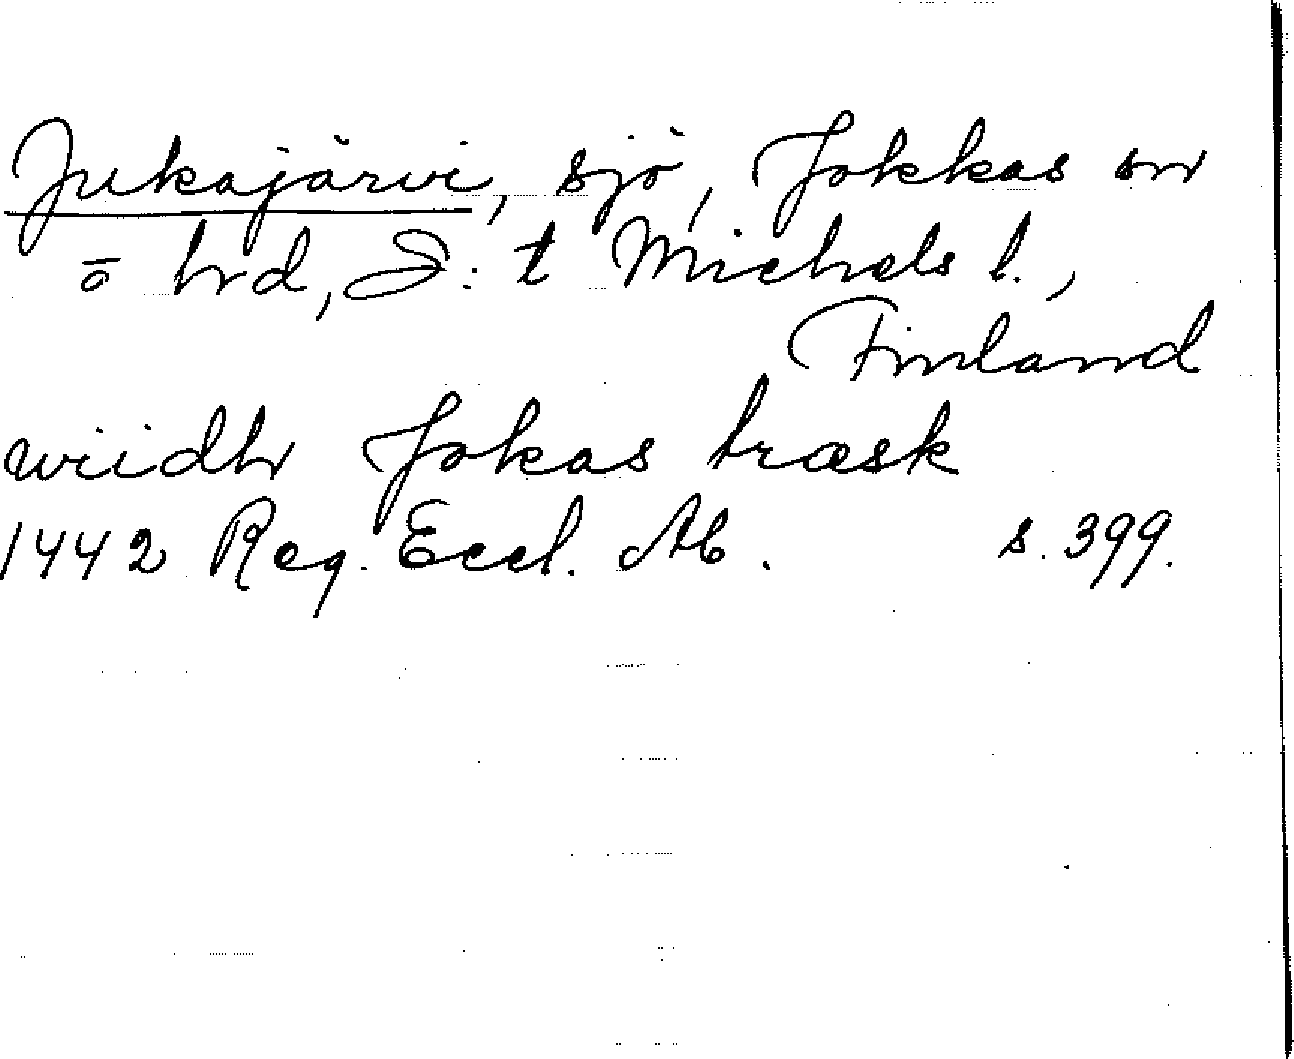 Jukajärvi, sjö, Jokkas sn
o hd, S:t Michels l.,
Finland
wiidh Jokas træsk
1442 Reg. Eccl. Ab. s. 399.